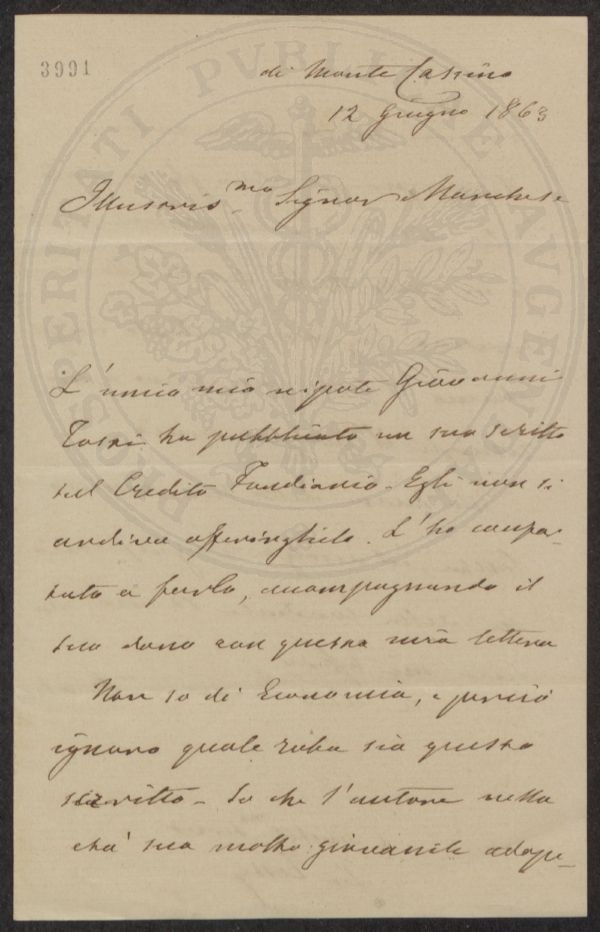 3991
di Monte Cassino
12 Giugno 1863
Illustris.mo Signor Marchese
L'unico mio nipote Giovanni
Tosti ha pubblicato un suo scritto
sul Credito Fondiario. Egli non si
ardiva offeringlielo. L'ho confor-
tato a farlo, accompagnando il
suo dono con questa mia lettera
Non so di Economia, e perciò
ignoro quale roba sia questo
scritto. So che l'autore nella
età sua molto giovanile adope-
PROSPERITATI PVBLICAE AVGENDAE